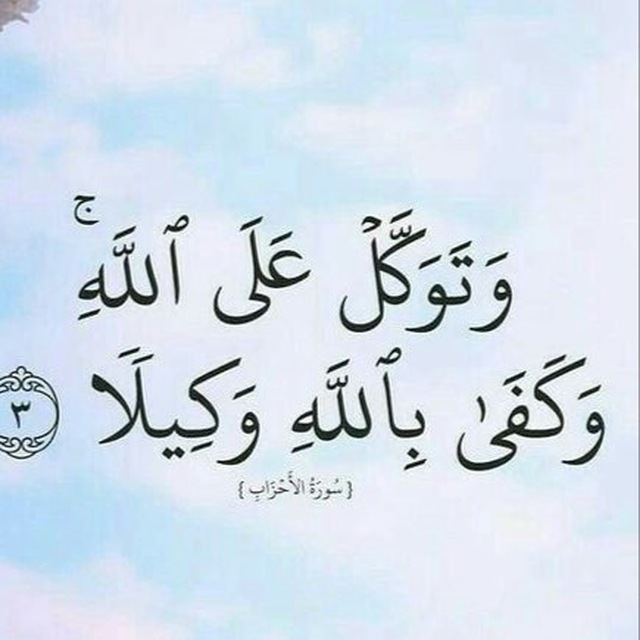 وَتَوَكَّلۡ عَلَى ٱللَّهِۚ
وَكَفَىٰ بِٱللَّهِ وَكِيلًا ٣
{ سُورَةُ الأَحْزَابِ }